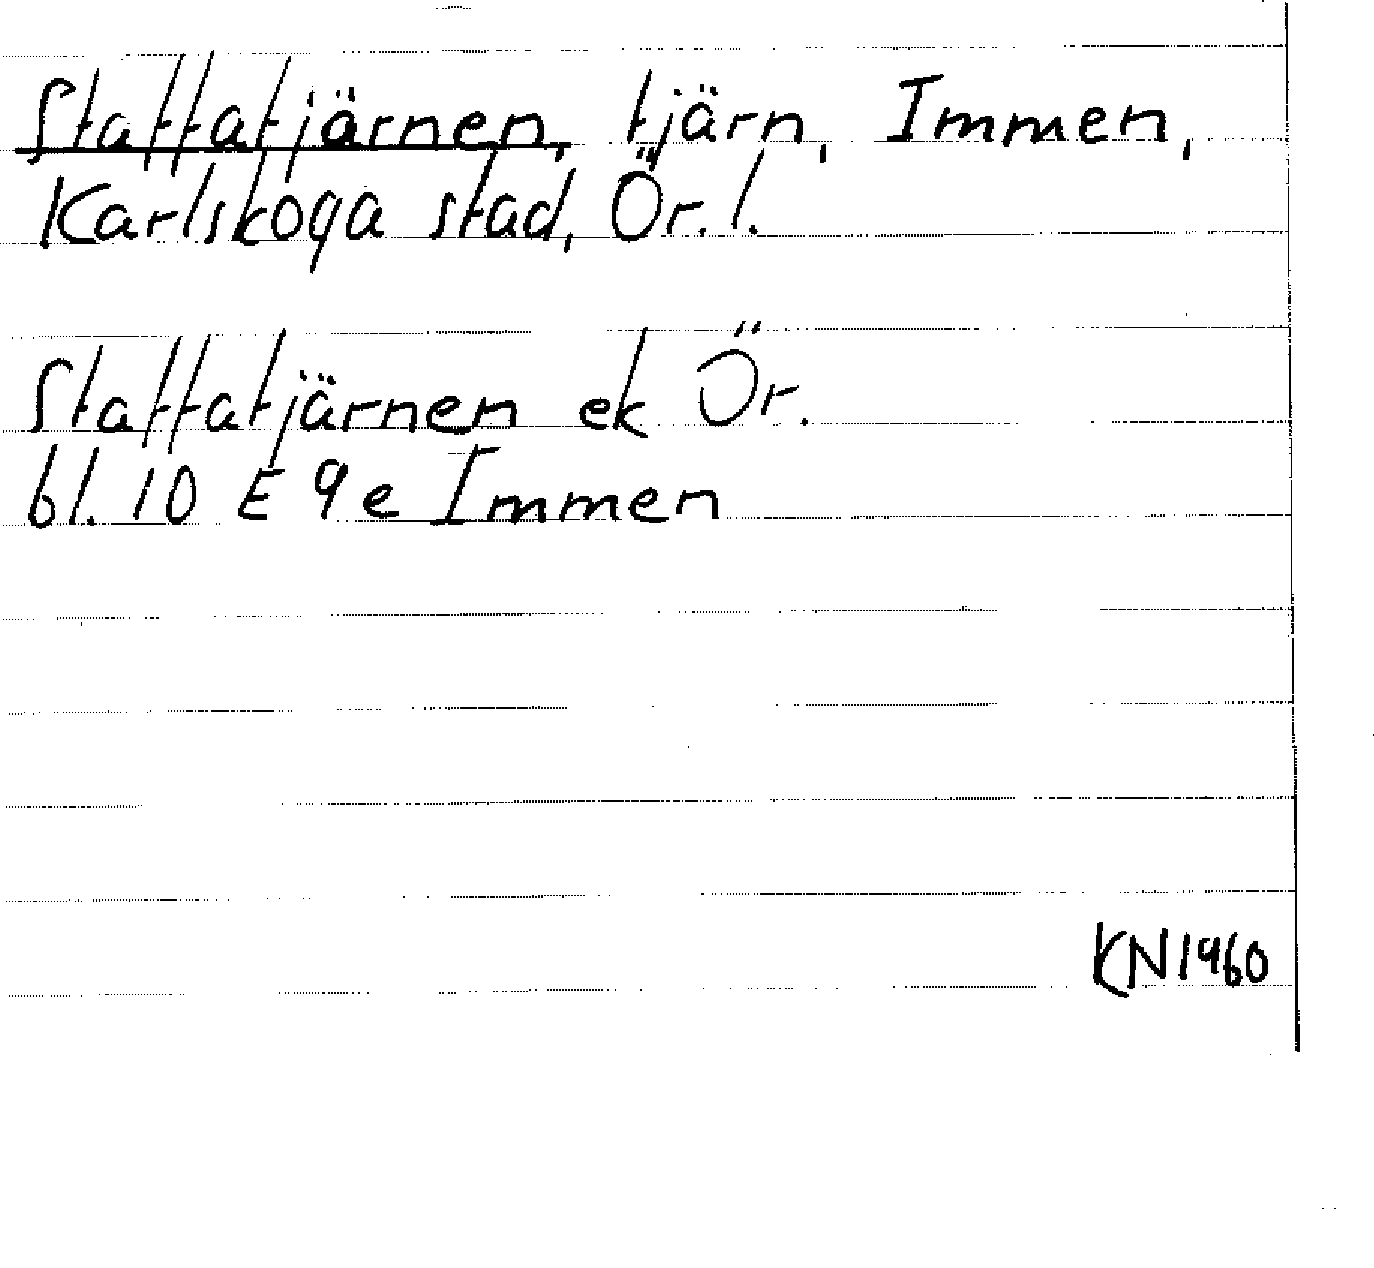 Staffatjärnen, tjärn, Immen,
Karlskoga stad, Ör. l.
Staffatjärnen ek Ör.
bl. 10 E 9 e Immen
KN 1960